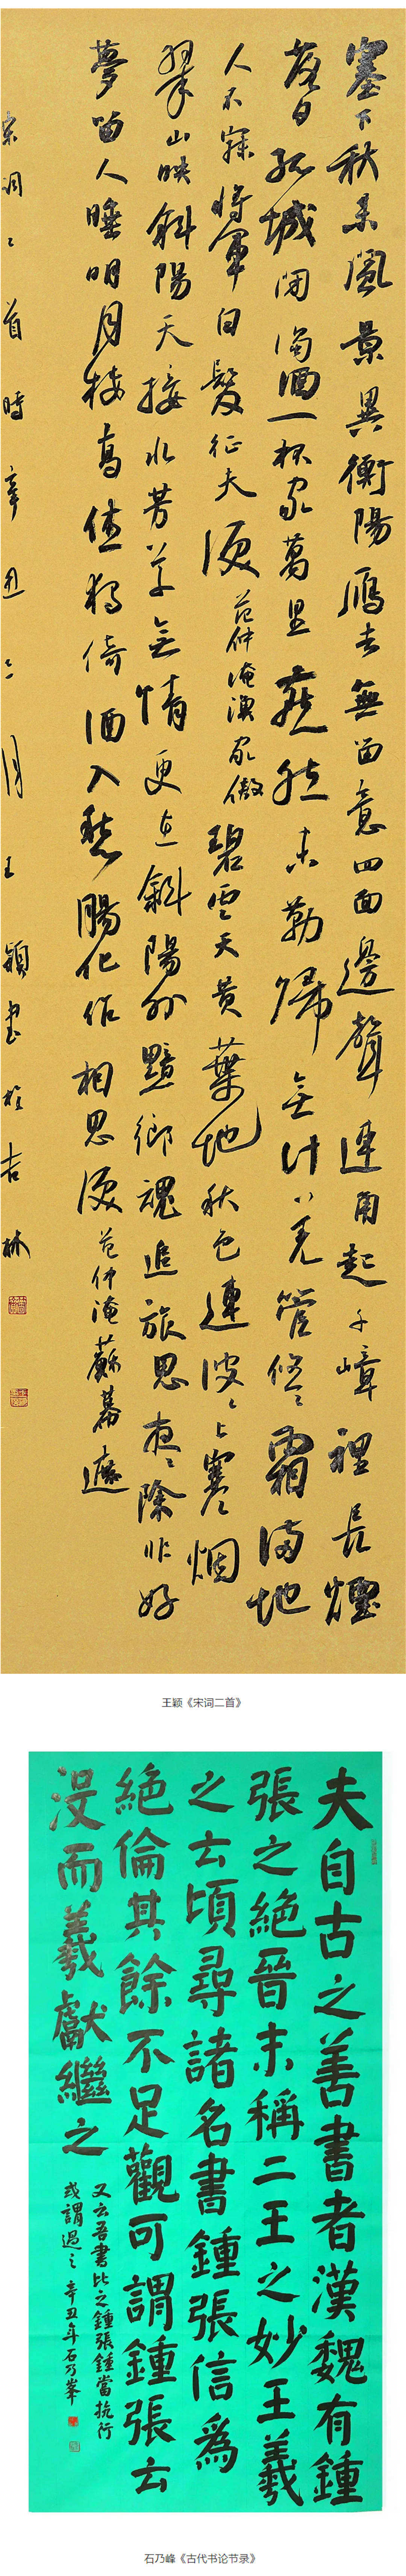 塞下秋来風景異衡陽雁去無留意四面邊聲連角起千嶂裡長煙
落日孤城閉濁酒一杯家萬里燕然未勒歸無計羌管悠〻霜満地
人不寐将軍白髮征夫淚范仲淹漁家傲碧雲天黄葉地秋色連波〻上寒烟
翠山映斜陽天接水芳草無情更在斜陽外黯鄉魂追旅思夜〻除非好
夢留人睡明月楼高休獨倚酒入愁腸化作相思淚范仲淹蘇幕遮
宋詞二首時辛丑六月王穎書於吉林
王颖《宋词二首》
夫自古之善書者漢魏有鍾
張之絕晉末稱二王之妙王羲
之云頃尋諸名書鍾張信為
絕倫其餘不足觀可謂鍾張云
没而羲獻繼之
又云吾書比之鍾張鍾當抗行
或謂過之辛丑年石乃峯
石乃峰《古代书论节录》